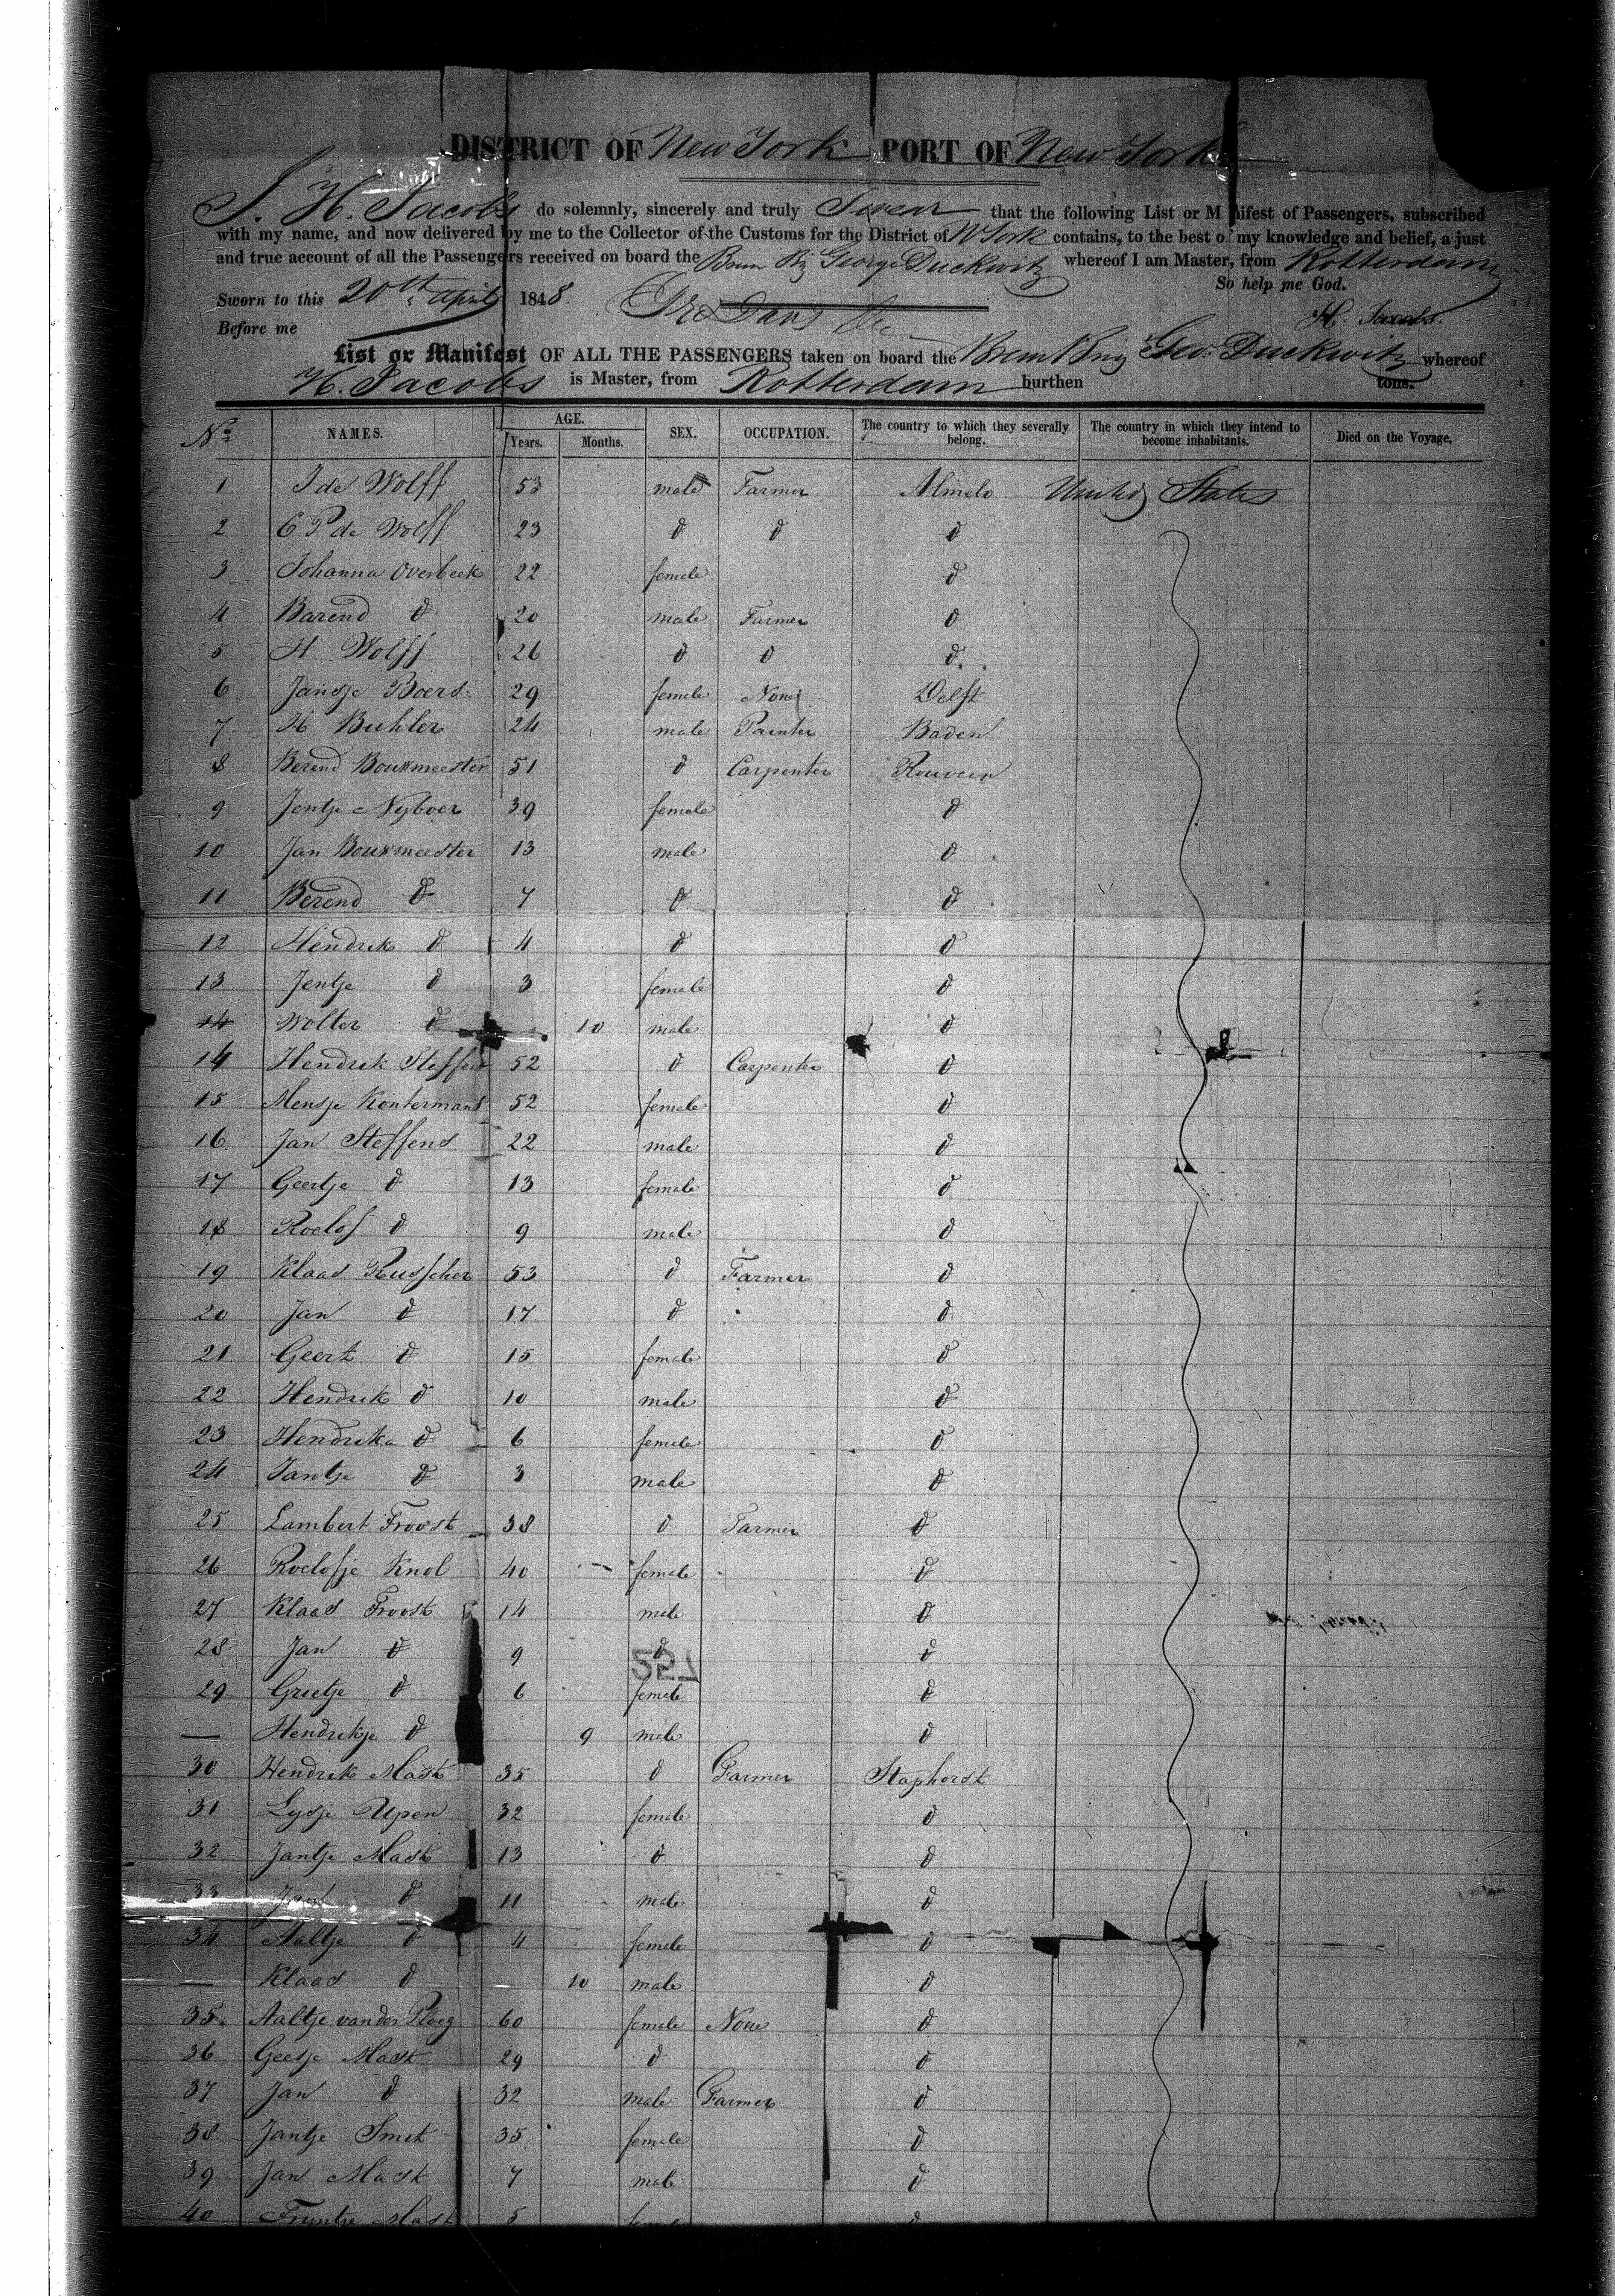 DISTRICT OF New York PORT OF New York
I. H. Jacobs do solemnly, sincerely and truly Swear that the following List or M nifest of Passengers, subscribed
with my name, and now delivered by me to the Collector of the Customs for the District of N York contains, to the best of my knowledge and belief, a just
and true account of all the Passengers received on board the Brem Brig George Duckwitz whereof I am Master, from Rotterdam
So help me God.
Sworn to this 20th April 1848
H. Jacobs.
Before me
List or Manifest OF ALL THE PASSENGERS taken on board the Brem Brig Geo: Duckwitz whereof
H. Jacobs is Master, from Rotterdam burthen tons.
No. NAMES. AGE. Years. Months. SEX. OCCUPATION. The country to which they severally belong. The country in which they intend to become inhabitants. Died on the Voyage.
1 J de Wolff 53 male Farmer Almelo United States
2 C P de Wolff 23 d d d
3 Johanna Overbeek 22 female d
4 Barend d 20 male Farmer d
5 H Wolff 26 d d d
6 Jansje Boers 29 female None Delft
7 H Buhler 24 male Painter Baden
8 Berend Bouwmeester 51 d Carpenter Rouveen
9 Jentje Nyboer 39 female d
10 Jan Bouwmeester 13 male d
11 Berend d 7 d d
12 Hendrik d 4 d d
13 Jentje d 3 female d
14 Wolter d 10 male d
14 Hendrik Steffens 52 d Carpenter d
15 Mensje Kontermans 52 female d
16 Jan Steffens 22 male d
17 Geertje d 13 female d
18 Roelof d 9 male d
19 Klaas Russcher 53 d Farmer d
20 Jan d 17 d d
21 Geert d 15 female d
22 Hendrik d 10 male d
23 Hendrika d 6 female d
24 Jantje d 3 male d
25 Lambert Troost 38 d Farmer d
26 Roelofje Knol 40 female d
27 Klaas Troost 14 male d
28 Jan d 9 d d
29 Grietje d 6 female d
— Hendrikje d 9 male d
30 Hendrik Mast 35 d Farmer Staphorst
31 Lysje Upen 32 female d
32 Jantje Mast 13 d d
33 Jan d 11 male d
34 Aaltje d 4 female d
— Klaas d — 10 male d
35 Aaltje van der Ploeg 60 female None d
36 Geesje Mast 29 d d
37 Jan d 32 male Farmer d
38 Jantje Smit 35 female d
39 Jan Mast 7 male d
40 Fryntje Mast 5 d